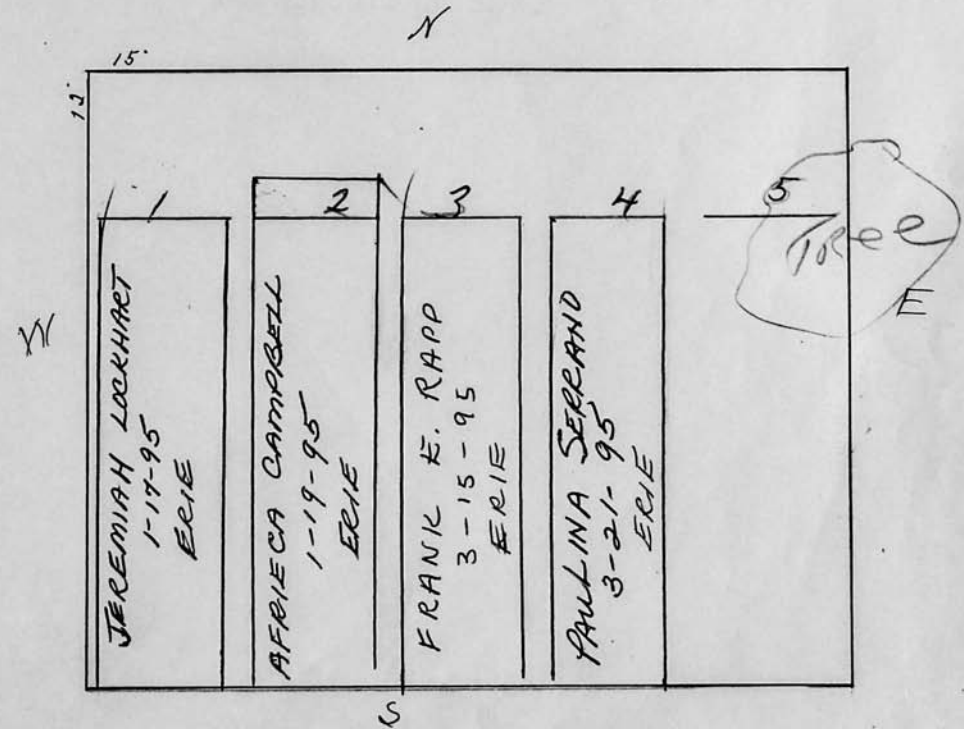 N
15'
12'
W
1
2
3
4
5
Tree
E
JEREMIAH LOCKHART
1-17-95
ERIE
AFRIECA CAMPBELL
1-19-95
ERIE
FRANK E. RAPP
3-15-95
ERIE
PAULINA SERRAND
3-21-95
ERIE
S